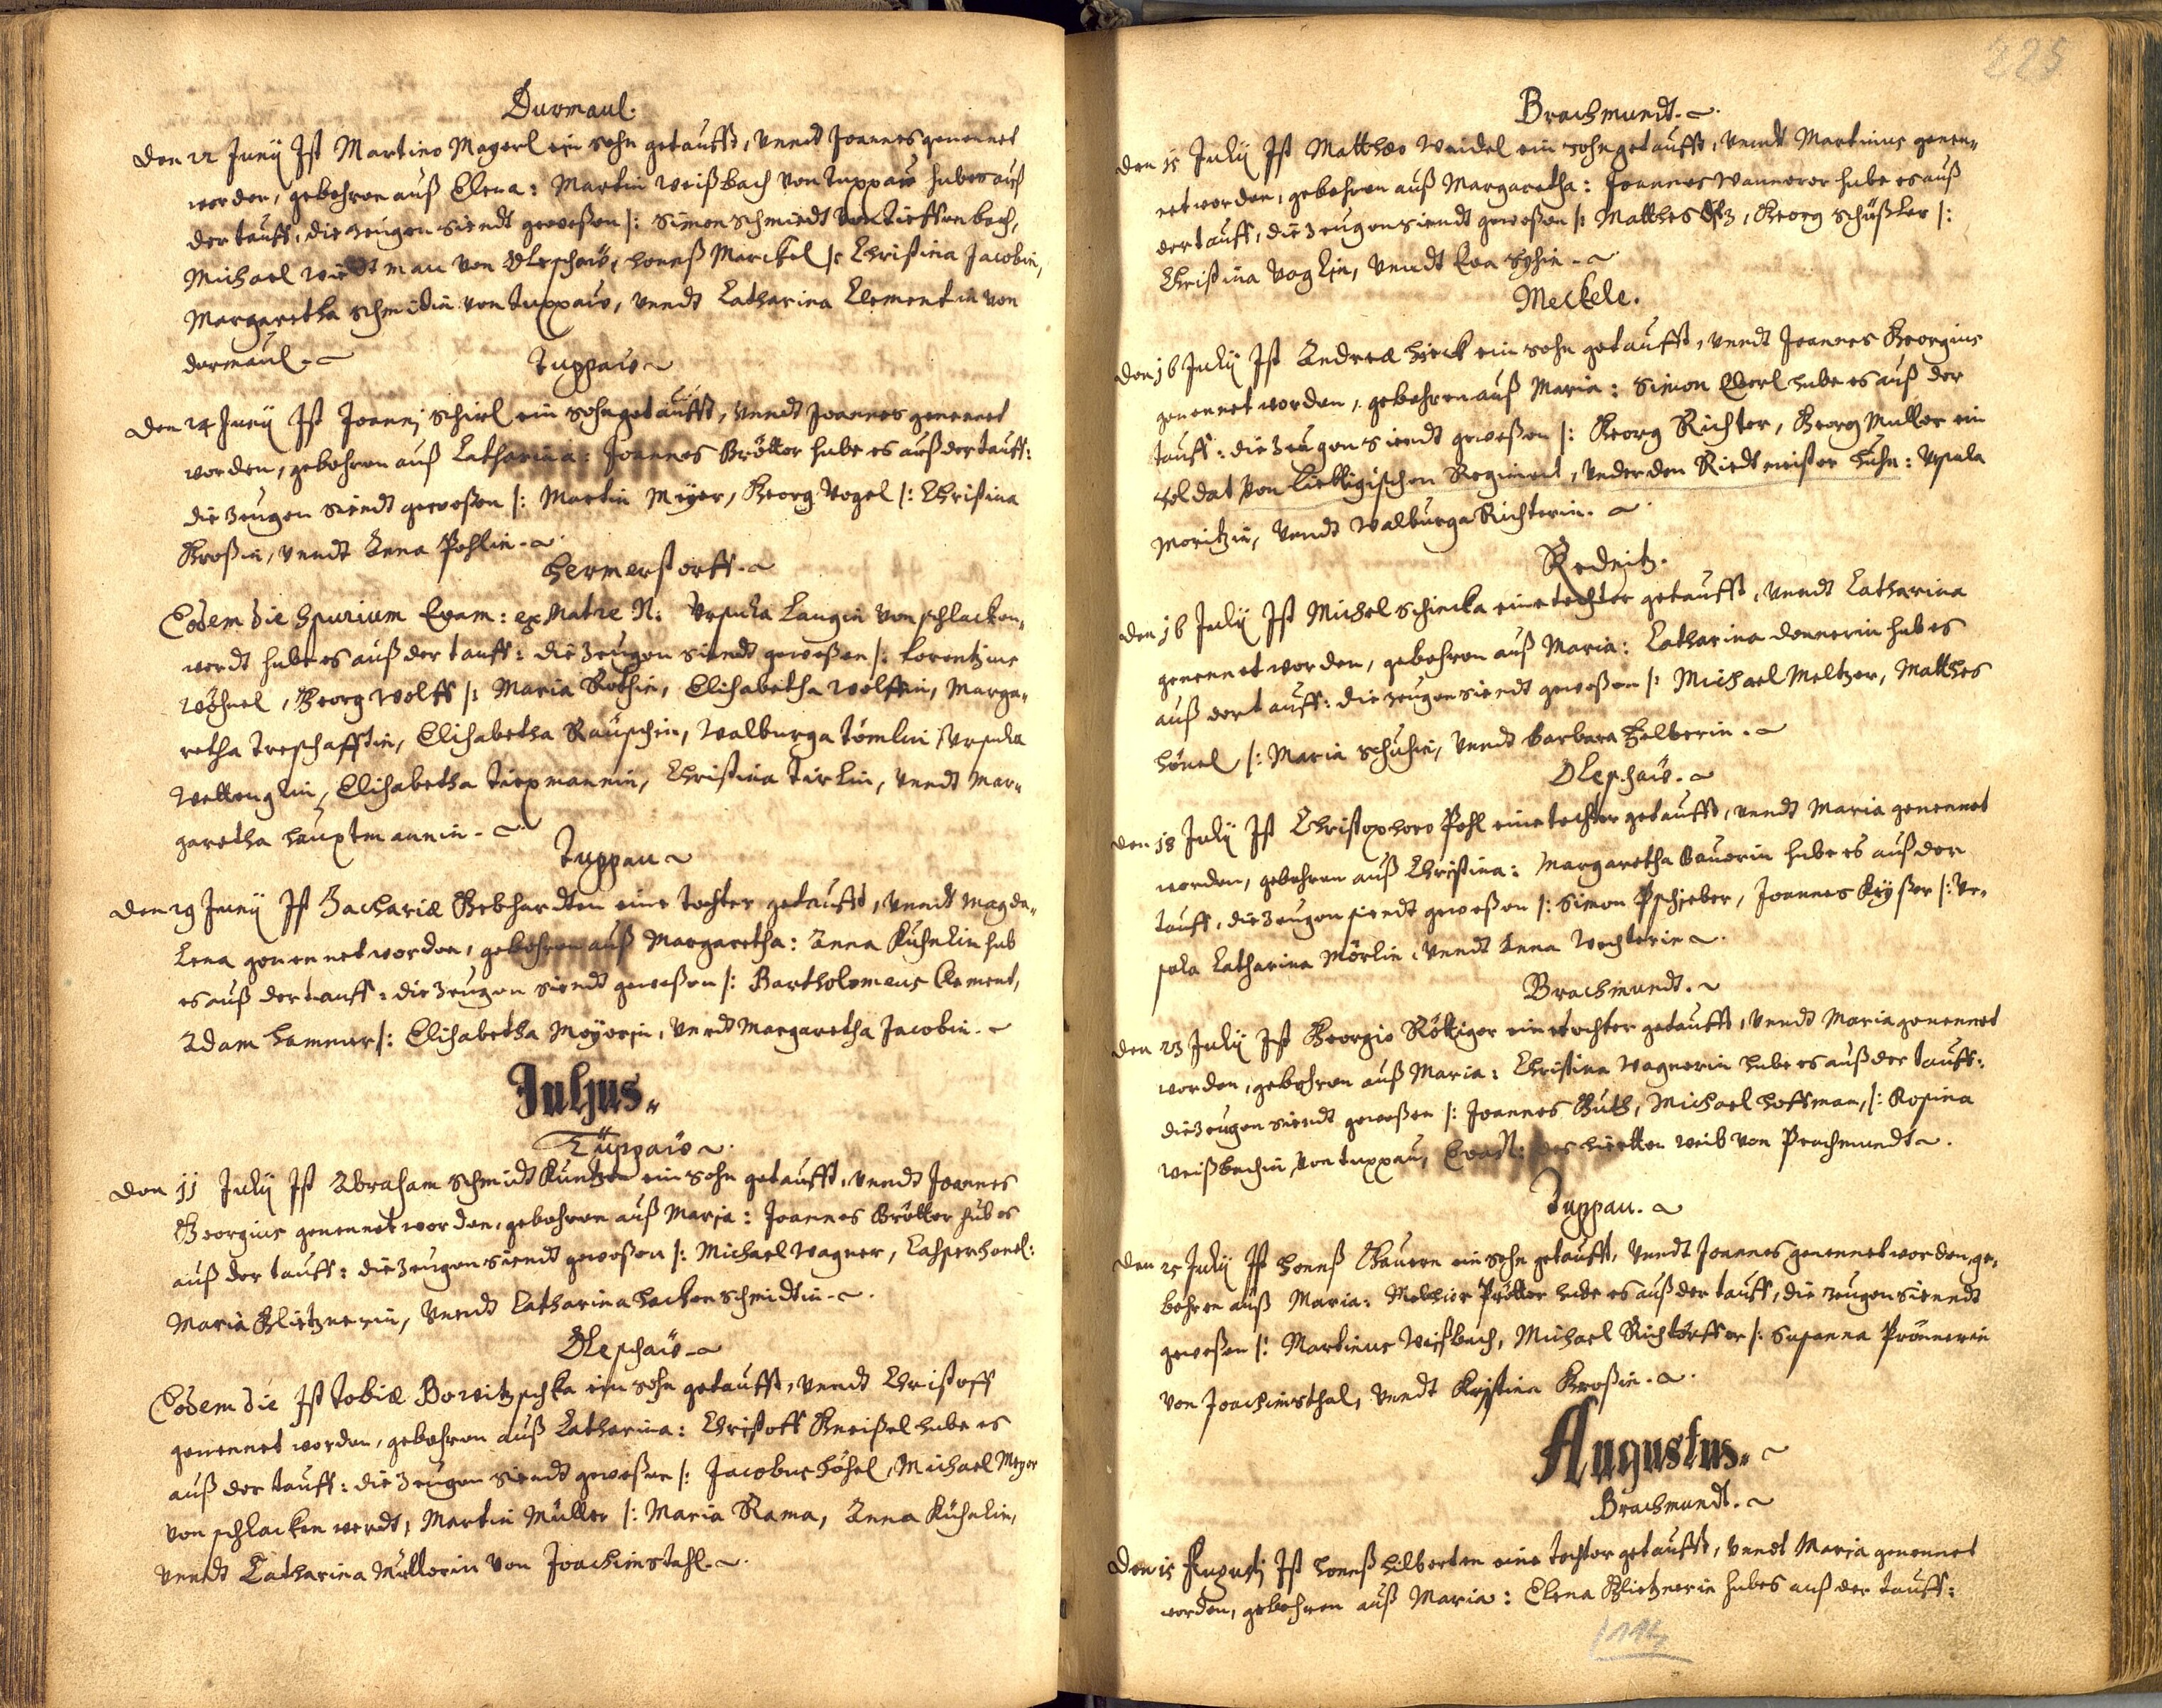 Durmaul.
Den 22 Junÿ Ist Martino Magerl ein sohn getaufft, vnndt Joannes genennet
worden, gebohren auß Elena: Martin Weißbach von Tuppau hub es auß
der tauff, die zeugen siendt geweßen /: Simon Schmiedt von Tieffenbach,
Michael Wiedtman von Oleschaw, Honnß Marckel /: Christina Jacobin,
Margaretha Schmidin von Tuppaw, vnndt Catharina Clementin von
dormaul.
Tuppaw
Den 24 Junÿ Ist Joannj Schirl ein sohn getaufft, vnndt Joannes genennet
worden, gebohren auß Catharina: Joannes Brötter hube es auß der tauff:
die zeugen siendt geweßen /: Martin Mÿer, Georg Vogel /: Christina
Großin, vnndt Anna Pohlin.
Hermerstorff.
Eodem die spurium Evam: ex Matre N: Ursula Langin von Schlacken-
werdt hube es auß der tauff: die zeugen siendt geweßen /: Lorentzius
Wöhnel, Georg Wolff /: Maria Rothin, Elisabetha Wolffin, Marga-
retha Treschafftin, Elisabetha Rauschin, Walburga Tömlin, Ursula
Wettenglin, Elisabetha Tiepmannin, Christina Tirlin, vnndt Mar-
garetha Hauptmannin.
Tuppau
Den 29 Junÿ Ist Zachariæ Gebhardten eine tochter getaufft, vnndt Magda-
lena genennet worden, gebohren auß Margaretha: Anna Kühnlin hub
es auß der tauff: die zeugen siendt geweßen /: Bartholomeus Clement,
Adam Hammer /: Elisabetha Meÿerin, vnndt Margaretha Jacobin.
Julius.
Tuppaw
Den 11 Julÿ Ist Abraham Schmidt Kuntzen ein sohn getaufft, vnndt Joannes
Georgius genennet worden, gebohren auß Maria: Joannes Brötter hub es
auß der tauff: die zeugen siendt geweßen /: Michael Wagner, Casper Honel:
Maria Glietznerin, vnndt Catharina Hackenschmidtin.
Oleschaw
Eodem die Ist Tobiæ Borvitzschka ein sohn getaufft, vnndt Christoff
genennet worden, gebohren auß Catharina: Christoff Gneißel hube es
auß der tauff: die zeugen siendt geweßen /: Jacobus Höhel, Michael Meÿer
von Schlackenwerdt, Martin Müller /: Maria Rama, Anna Kühnlin,
vnndt Catharina Müllerin von Joachimstahl.
225
Brachmundt.
Den 15 Julÿ Ist Matthæo Weidel ein sohn getaufft, vnndt Martinus genen-
net worden, gebohren auß Margaretha: Joannes Wannerer hube es auß
der tauff, die zeugen siendt geweßen /: Matthes Götz, Georg Schüßler /:
Christina Voglin, vnndt Eva
Meckele.
Den 16 Julÿ Ist Andreæ Hieck ein sohn getaufft, vnndt Joannes Georgius
genennet worden, gebohren auß Maria: Simon Eberl hube es auß der
tauff: die zeugen siendt geweßen /: Georg Richter, Georg Müller ein
soldat von Regiment, vnder den Riedtmeister Huhn: Ursula
Moritzin, vnndt Walburga Richterin.
Rednitz.
Den 16 Julÿ Ist Michel Schincka eine tochter getaufft, vnndt Catharina
genennet worden, gebohren auß Maria: Catharina Donnerin hub es
auß der tauff: die zeugen siendt geweßen /: Michael Meltzer, Matthes
Hönel /: Maria Schuhin, vnndt Barbara Helberin.
Oleschaw.
Den 18 Julÿ Ist Christophoro Pohl eine tochter getaufft, vnndt Maria genennet
worden, gebohren auß Christina: Margaretha Bauerin hube es auß der
tauff, die zeugen siendt geweßen /: Simon Pschieber, Joannes Keÿßer /: Ur-
sula Catharina Mörlin, vnndt Anna Wechterin.
Brachmundt.
Den 23 Julÿ Ist Georgio Röttiger eine tochter getaufft, vnndt Maria genennet
worden, gebohren auß Maria: Christina Wagnerin hube es auß der tauff:
die zeugen siendt geweßen /: Joannes Guth, Michael Hoffman, /: Rosina
Weißbachin von Tuppau, Eva N: des Hiertten weib von Prachmundt.
Tuppau.
Den 25 Julÿ Ist Honnß Bauern ein sohn getaufft, vnndt Joannes genennet worden, ge-
bohren auß Maria: Melchior Prötter hube es auß der tauff, die zeugen siendt
geweßen /: Martinus Weißbach, Michael Richtörffer /: Susanna Prönnerin
von Joachimsthal, vnndt Kristina Großin.
Augustus.
Brachmundt.
Den 15 Augusti Ist Honnß Hilberten eine tochter getaufft, vnndt Maria genennet
worden, gebohren auß Maria: Elena Glietznerin hub es auß der tauff: